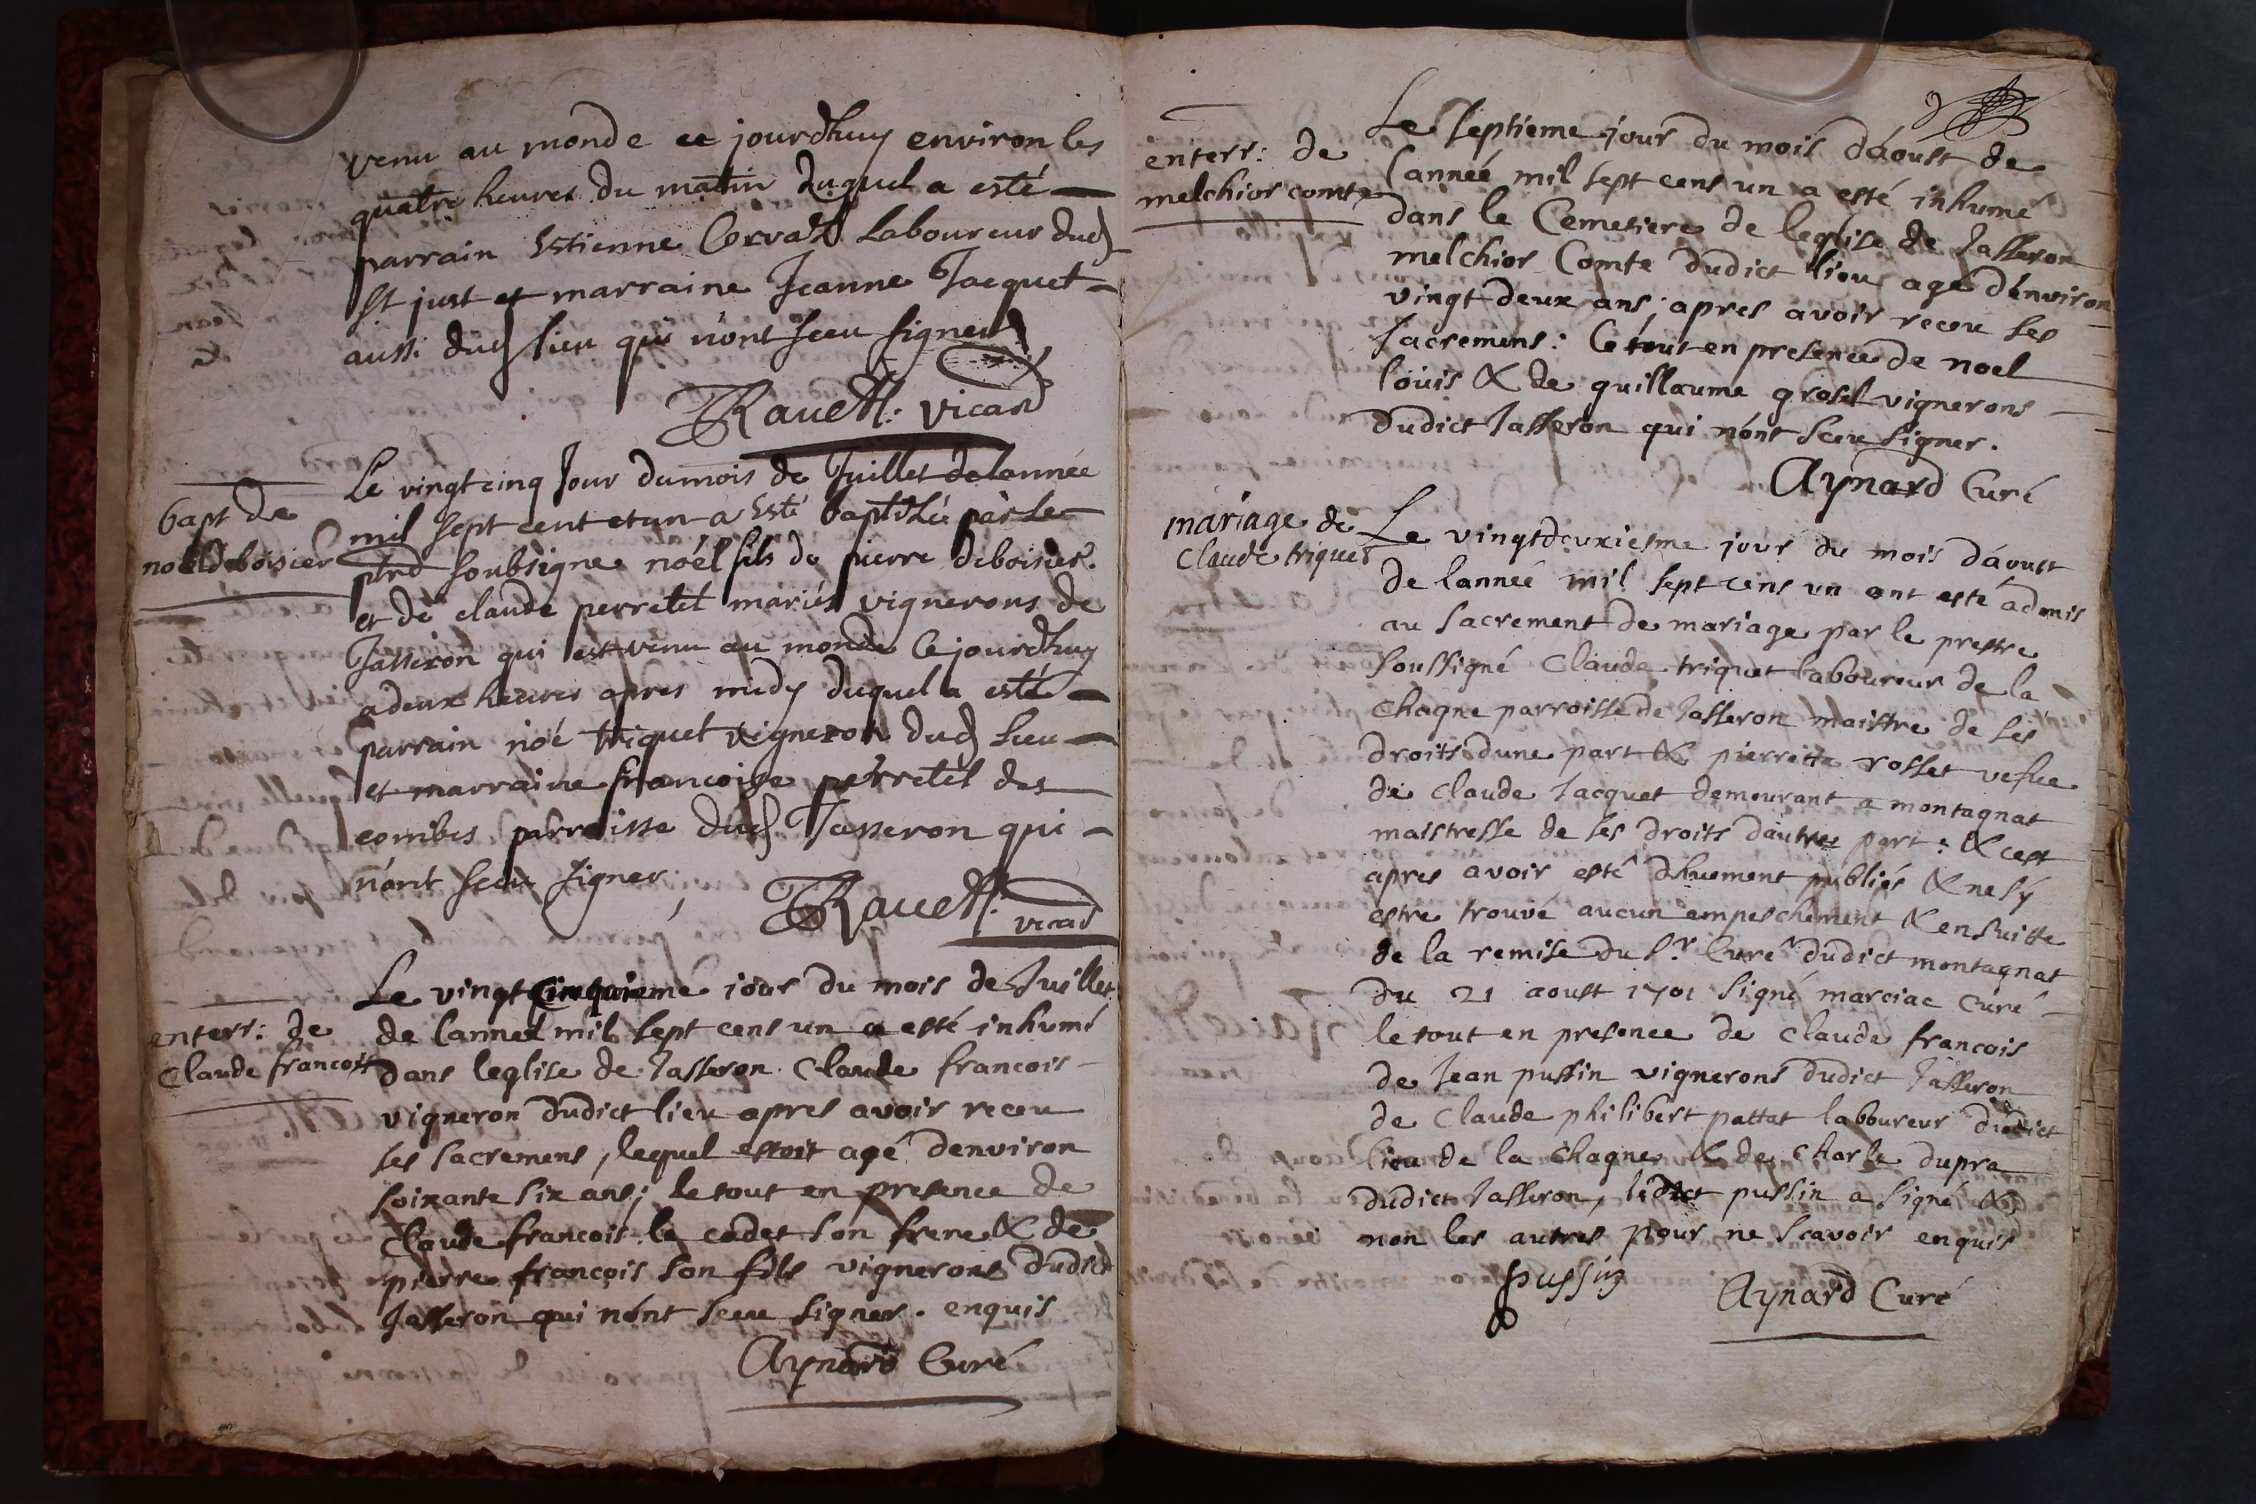 venu au monde ce jourdhuy environ les
quatre heures du matin duquel a esté
parrain Estienne Corvat Laboureur dud
St just et marraine Jeanne Jacquet
aussi dud lieu qui nont sceu signer
Ravet. vicard
bapt de
noel deboisier
Le vingt cinq Jour du mois de Juillet de lannée
mil sept cent et un a esté baptisé par le
soubsigne noél fils de pierre deboisier
et de claude perretet mariés vignerons de
Jasseron qui est venu au monde ce jourdhuy
a deux heures apres midy duquel a esté
parrain noé triquet vigneron dud lieu
et marraine francoise perretet des
combes parroisse dud Jasseron qui
nont sceu signer.
Ravet.
vicard
enterr: de
Claude francois
Le vingt cinquiemé jour du mois de Juillet
de lanneé mil sept cens un a esté inhumé
dans leglise de Jasseron Claude francois
vigneron dudict lieu apres avoir receu
ses sacremens, lequel estoit agé denviron
soixante six ans; le tout en presence de
Claude francois le cadet son frere & de
pierre françois son fils vignerons dudict
Jasseron qui nónt sceu signer. enquis
Aynard Curé
enterr: de
melchior comte
Le septieme jour du mois dáoust de
lanneé mil sept cens un a esté inhumé
dans le Cemetiere de leglise de Jasseron
melchior Comte dudict lieu agé dénviron
vingt deux ans; apres avoir receu ses
sacremens: Cé tout en presence de noel
loüis & de guillaume groset vignerons
dudict Jasseron qui nónt sceu signer.
Aynard Curé
mariage de
Claude triquet
Le vingtdeuxiesme jour du mois dávust
de lanneé mil sept cens un ont esté admis
au sacrement de mariage par le prestre
soussigné Claude triquet laboureur de la
Chagne parroisse de Jasseron maistre de ses
droits dune part & pierrette rosset vefve
de Claude Jacquet demeurant a montagnat
maistresse de ses droits dáutre part: & cest
apres avoir esté dhuement publiés & ne sý
estre trouvé aucun empeschement & ensuitte
de la remise du Sr. Curé dudict montagnat
du 21 aoust 1701 signé marciac Curé
le tout en presence de Claude francois
de Jean pussin vignerons dudict Jasseron
de Claude philibert pattat laboureur dudict
lieu de la Chagne & de Charle dupra
dudict Jasseron, lédict pussin a signé &
non les autres pour ne scavoir enquis
pussin
Aynard Curé